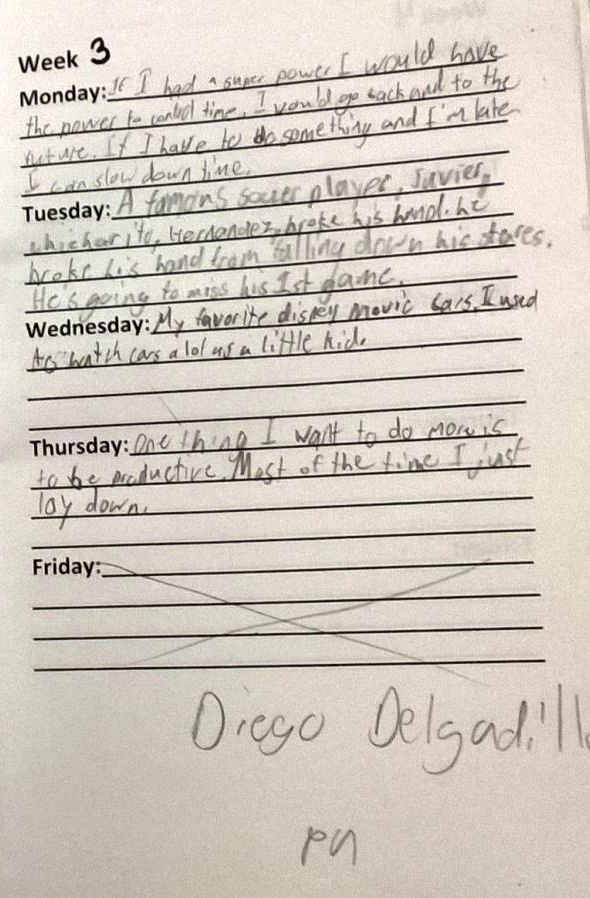 Week 3
Monday: If I had a super power I would have
the power to control time. I would go back and to the
future. If I have to do something and I'm late
I can slow down time.
Tuesday: A famous soccer player, Javier,
chicharito, Hernandez, broke his hand. he
broke his hand from falling down his stares.
He's going to miss his 1st game.
Wednesday: My favorite disney movie cars. I used
to watch cars a lol as a little kid.
Thursday: One thing I want to do more is
to be productive. Most of the time I just
lay down.
Friday:
Diego Delgadillo